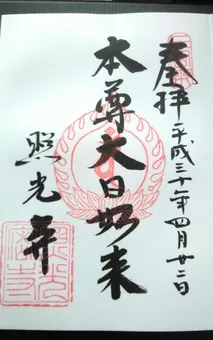 奉拝 平成三十一年四月廿二日
本尊大日如来
照光寺